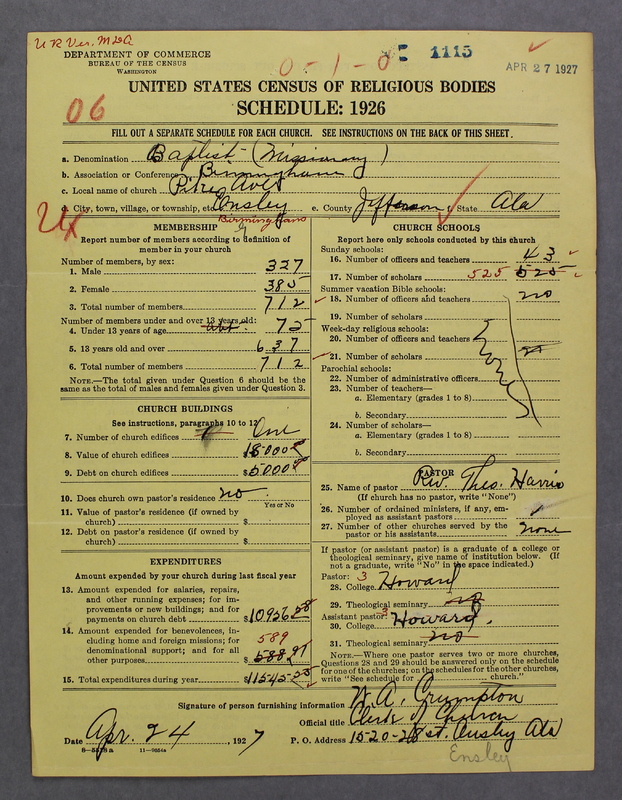 U R Ver. M&A
DEPARTMENT OF COMMERCE
BUREAU OF THE CENSUS
WASHINGTON
0-1-0
1115
APR 27 1927
UNITED STATES CENSUS OF RELIGIOUS BODIES
SCHEDULE: 1926
06
FILL OUT A SEPARATE SCHEDULE FOR EACH CHURCH. SEE INSTRUCTIONS ON THE BACK OF THIS SHEET.
a. Denomination Baptist (Missionary)
b. Association or Conference Birmingham
c. Local name of church Pike Ave
d. City, town, village, or township, etc. Ensley e. County Jefferson f. State Ala
Birmingham
MEMBERSHIP
Report number of members according to definition of
member in your church
Number of members, by sex:
1. Male 327
2. Female 385
3. Total number of members 712
Number of members under and over 13 years old:
4. Under 13 years of age abt. 75
5. 13 years old and over 637
6. Total number of members 712
NOTE.—The total given under Question 6 should be the
same as the total of males and females given under Question 3.
CHURCH BUILDINGS
See instructions, paragraphs 10 to 12
7. Number of church edifices One
8. Value of church edifices $15000
9. Debt on church edifices $5000
10. Does church own pastor's residence? no
Yes or No
11. Value of pastor's residence (if owned by
church) $
12. Debt on pastor's residence (if owned by
church) $
EXPENDITURES
Amount expended by your church during last fiscal year
13. Amount expended for salaries, repairs,
and other running expenses; for im-
provements or new buildings; and for
payments on church debt $10956
14. Amount expended for benevolences, in-
cluding home and foreign missions; for
denominational support; and for all
other purposes 588
589
15. Total expenditures during year $11545
CHURCH SCHOOLS
Report here only schools conducted by this church
Sunday schools:
16. Number of officers and teachers 43
17. Number of scholars 525 525
Summer vacation Bible schools:
18. Number of officers and teachers no
19. Number of scholars
Week-day religious schools:
20. Number of officers and teachers
21. Number of scholars
none
Parochial schools:
22. Number of administrative officers
23. Number of teachers—
a. Elementary (grades 1 to 8)
b. Secondary
24. Number of scholars—
a. Elementary (grades 1 to 8)
b. Secondary
PASTOR
25. Name of pastor Rev. Theo. Harris
(If church has no pastor, write "None")
26. Number of ordained ministers, if any, em-
ployed as assistant pastors
27. Number of other churches served by the
pastor or his assistants none
If pastor (or assistant pastor) is a graduate of a college or
theological seminary, give name of institution below. (If
not a graduate, write "No" in the space indicated.)
Pastor: 3
28. College Howard
29. Theological seminary no
Assistant pastor: 3
30. College Howard.
31. Theological seminary no
NOTE.—Where one pastor serves two or more churches,
Questions 28 and 29 should be answered only on the schedule
for one of the churches; on the schedules for the other churches,
write "See schedule for church."
Signature of person furnishing information W. A. Crumpton
Official title Clerk of Church
Date Apr. 24, 1927 P. O. Address 15-20-28 st. Ensley Ala
8—5518a 11—9654a
Ensley